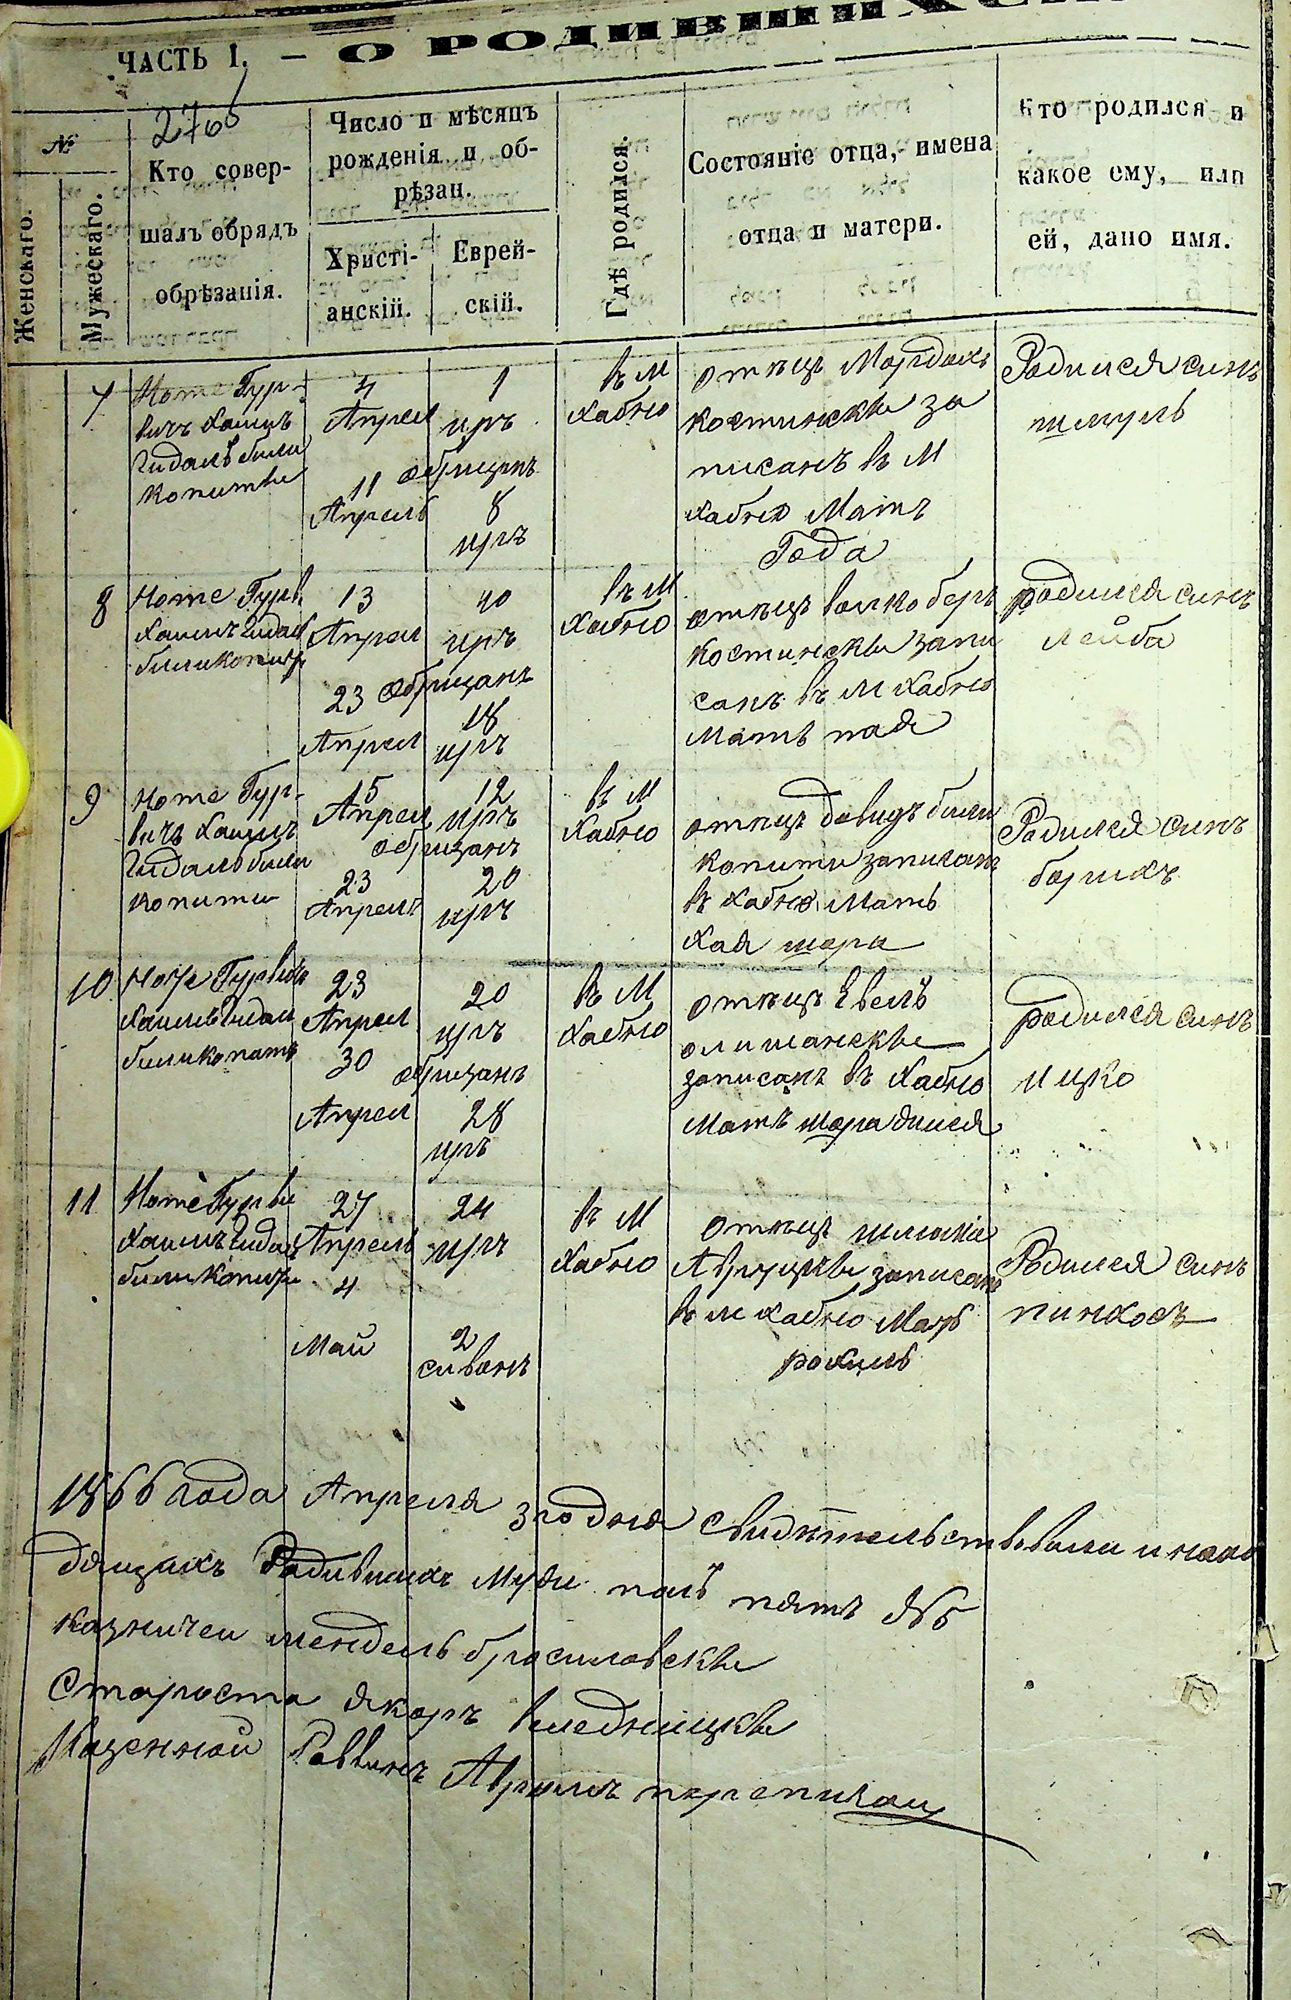 ЧАСТЬ I. — О РОДИВШИХСЯ
276
№
Женскаго.
Мужескаго.
Кто совер-
шалъ обрядъ
обрѣзанія.
Число и мѣсяцъ
рожденія и об-
рѣзан.
Христі-
анскій.
Еврей-
скій.
Гдѣ родился.
Состояніе отца, имена
отца и матери.
Кто родился и
какое ему, или
ей, дано имя.
7
Ноте Гур-
вичъ Хаимъ
Гидаль били
копитви
4
Апрел
1
иръ
обрицанъ
11
Апрель
8
иръ
въ М
Хабно
отецъ Мордахъ
костинскви за
писанъ въ М
Хабно Мать
Года
Родился синъ
шмуль
8
Ноте Гурв
Хаимъ Гидал
биликопит
13
Апрел
10
иръ
23 обрицанъ
Апрел
18
иръ
въ М
Хабно
отецъ волко беръ
костинскви запи
санъ въ М Хабно
Мать пая
родился синъ
лейба
9
Ноте Гур-
вичъ Хаимъ
Гидаль били
копити
15
Апрел
12
иръ
обрицанъ
23
Апрель
20
иръ
въ М
Хабно
отецъ давидъ били
копити записанъ
въ Хабно Мать
Хая шора
Родился синъ
борихъ
10
Ноте Гурвичъ
Хаимъ Гидал
биликопить
23
Апрел
20
иръ
30 обрицанъ
Апрел
28
иръ
въ М
Хабно
отецъ Евель
олишанскви
записанъ въ Хабно
Мать
родился синъ
ицко
11
Ноте Гурви
Хаимъ Гидал
биликопити
27
Апрель
24
иръ
4
Май
2
сиванъ
въ М
Хабно
отецъ шлиома
записанъ
въ М Хабно Мать
рохиль
Родился синъ
пинхосъ
1866 года Апреля 30 дня свидѣтельствовали и нахо
дящихъ Родившихъ Мужи полъ пять душ
казничеи мендель браславскви
Староста
Казенной Раввинъ Аврумъ